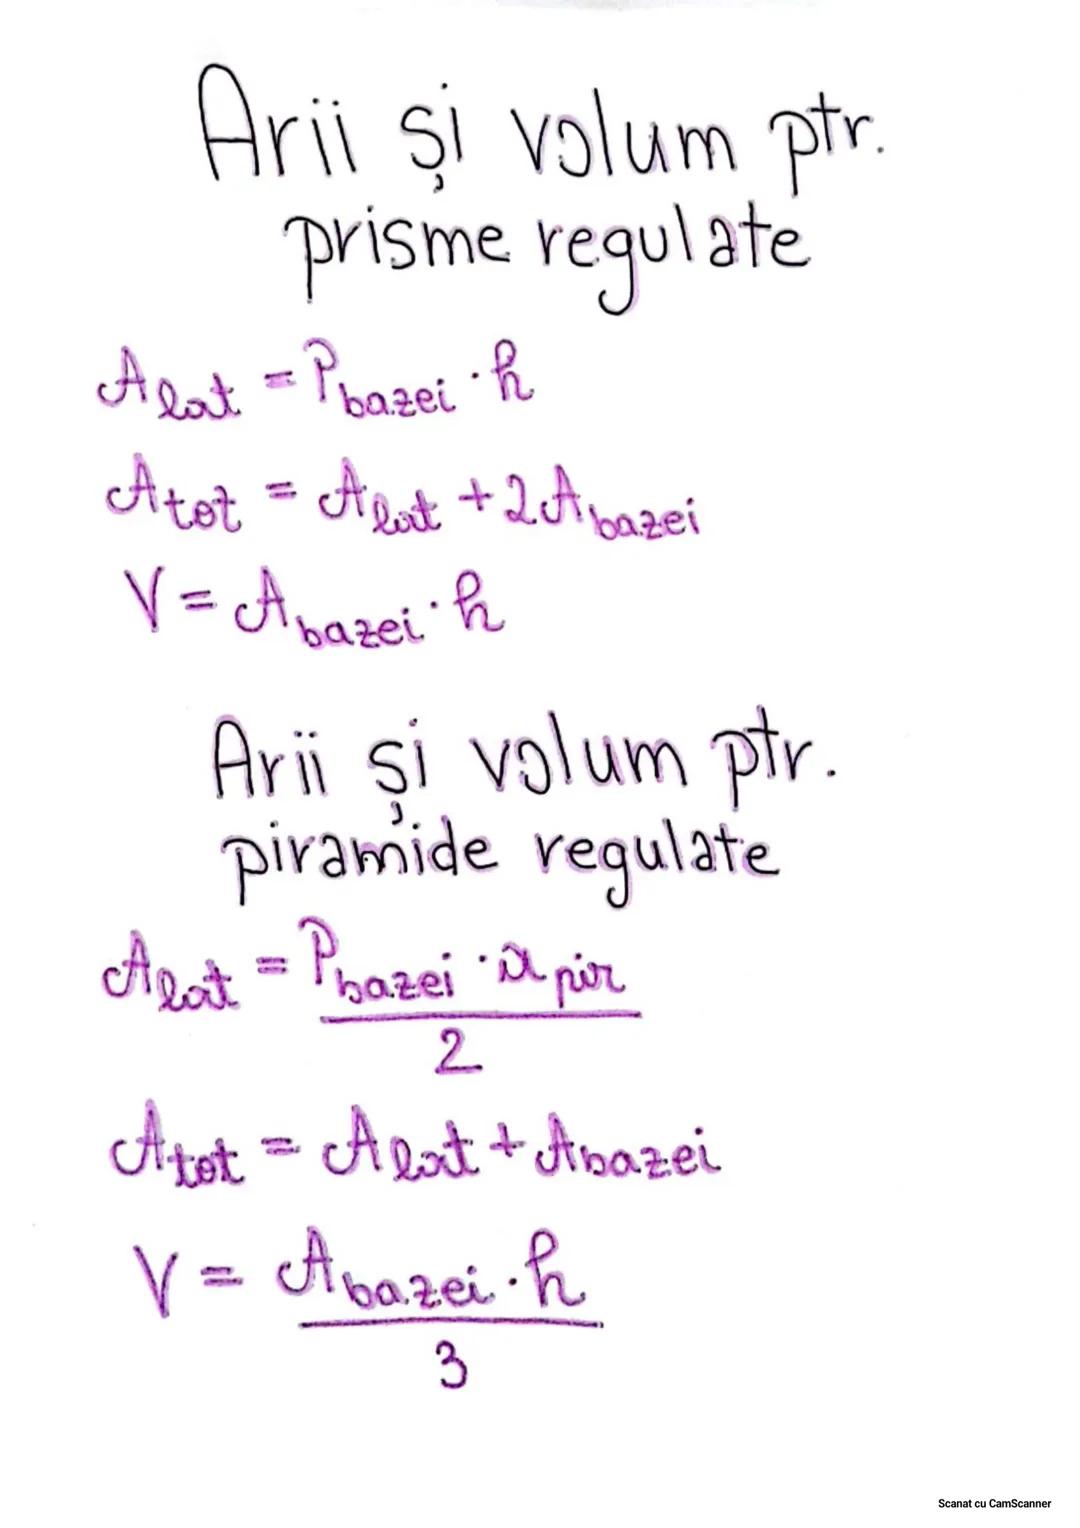 Arii și volum ptr.
prisme regulate
A lat = P bazei · h
A tot = A lat + 2A bazei
V = A bazei · h
Arii și volum ptr.
piramide regulate
A lat = P bazei · a pir
2
A tot = A lat + A bazei
V = A bazei · h
3
Scanat cu CamScanner